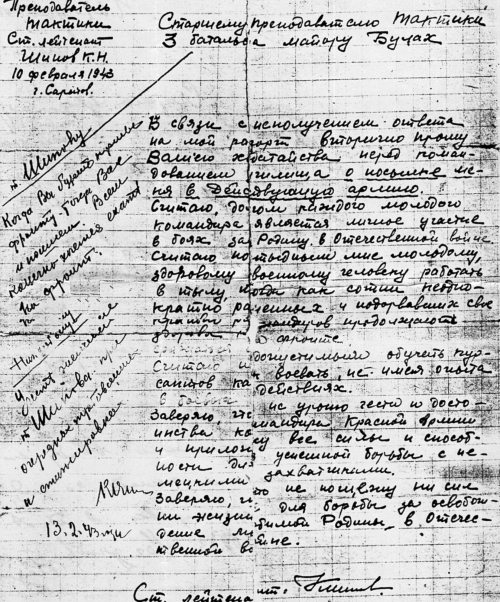 Преподаватель
тактики
Ст. лейтенант
Шипов К.Н.
10 февраля 1943
г. Саратов.
Старшему преподавателю тактики
3 батальона майору Булах
В связи с неполучением ответа
на мой рапорт вторично прошу
Вашего ходатайства перед коман-
дованием училища о посылке ме-
ня в Действующую армию.
Считаю, долгом каждого молодого
командира является личное участие
в боях за Родину, в Отечественной войне
Считаю постыдным мне молодому,
здоровому военному человеку работать
в тылу, тогда как сотни неодно-
кратно раненных и подорвавших свое
командиров продолжают
фронте.
Считаю
допустимым обучать кур-
сантов воевать, не имея опыта
в боевых действиях.
Заверяю, что не уроню чести и досто-
инства командира Красной Армии
и приложу все силы и способ-
ности для успешной борьбы с не-
мецкими захватчиками.
Заверяю, что не пощажу ни сил
ни жизни для борьбы за освобож-
дение любимой Родины, в Отече-
ственной войне.
Ст. лейтенант.
т. Шипову
Когда Вы будете нужны
фронту, тогда Вас
и пошлем. Всем
конечно хочется ехать
на фронт.
Нач. 
Учесть желание
т. Шипова при
очередных отправлениях
и стажировке
13.2.43